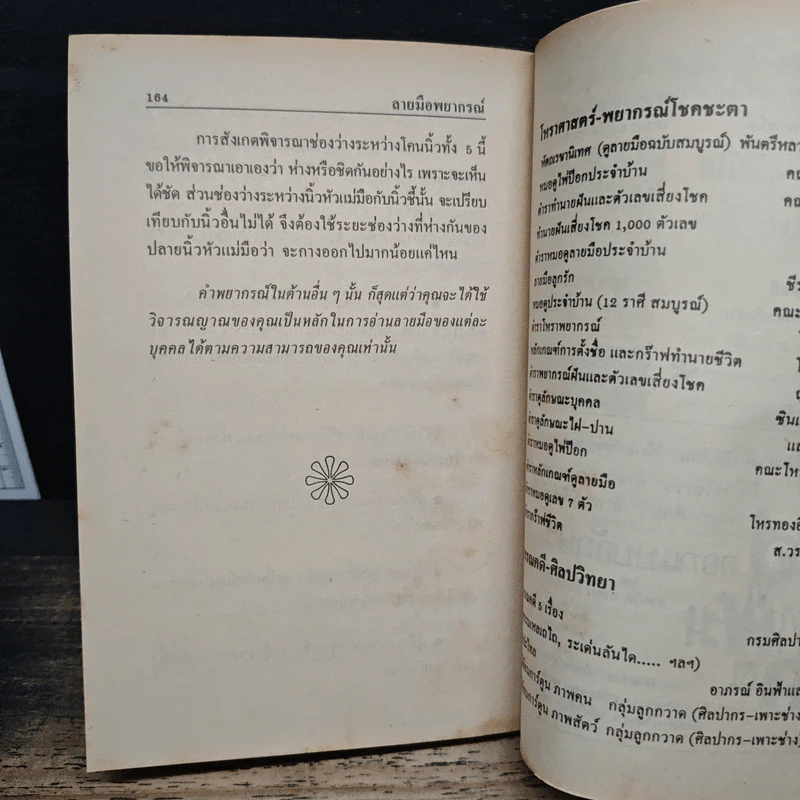 164
ลายมือพยากรณ์
การสังเกตพิจารณาช่องว่างระหว่างโคนนิ้วทั้ง 5 นี้
ขอให้พิจารณาเอาเองว่า ห่างหรือชิดกันอย่างไร เพราะจะเห็น
ได้ชัด ส่วนช่องว่างระหว่างนิ้วหัวแม่มือกับนิ้วชี้นั้น จะเปรียบ
เทียบกับนิ้วอื่นไม่ได้ จึงต้องใช้ระยะช่องว่างที่ห่างกันของ
ปลายนิ้วหัวแม่มือว่า จะกางออกไปมากน้อยแค่ไหน
คำพยากรณ์ในด้านอื่น ๆ นั้น ก็สุดแต่ว่าคุณจะได้ใช้
วิจารณญาณของคุณเป็นหลักในการอ่านลายมือของแต่ละ
บุคคล ได้ตามความสามารถของคุณเท่านั้น
โหราศาสตร์-พยากรณ์โชคชะตา
หัตถเรขานิเทศ (ดูลายมือฉบับสมบูรณ์) พันตรีหลว
หมอดูไพ่ป๊อกประจำบ้าน คณ
ตำราทำนายฝันและตัวเลขเสี่ยงโชค คณ
ทำนายฝันเสี่ยงโชค 1,000 ตัวเลข
ตำราหมอดูลายมือประจำบ้าน
ลายมือลูกรัก ชีร
หมอดูประจำบ้าน (12 ราศี สมบูรณ์) คณะ
ตำราโหราพยากรณ์
หลักเกณฑ์การตั้งชื่อ และกร๊าฟทำนายชีวิต
ตำราพยากรณ์ฝันและตัวเลขเสี่ยงโชค
ตำราดูลักษณะบุคคล ซินเ
ตำราดูลักษณะไฝ-ปาน แล
ตำราหมอดูไพ่ป๊อก คณะโห
ตำราหลักเกณฑ์ดูลายมือ
ตำราหมอดูเลข 7 ตัว โหรทองอิ
ตำรากร๊าฟชีวิต ส.วร
รณคดี-ศิลปวิทยา
รณคดี 5 เรื่อง
ระเด่นลันได..... ฯลฯ) กรมศิลปา
อาภรณ์ อินฟ้าแส
การ์ตูน ภาพคน กลุ่มลูกกวาด (ศิลปากร-เพาะช่าง)
การ์ตูน ภาพสัตว์ กลุ่มลูกกวาด (ศิลปากร-เพาะช่าง)